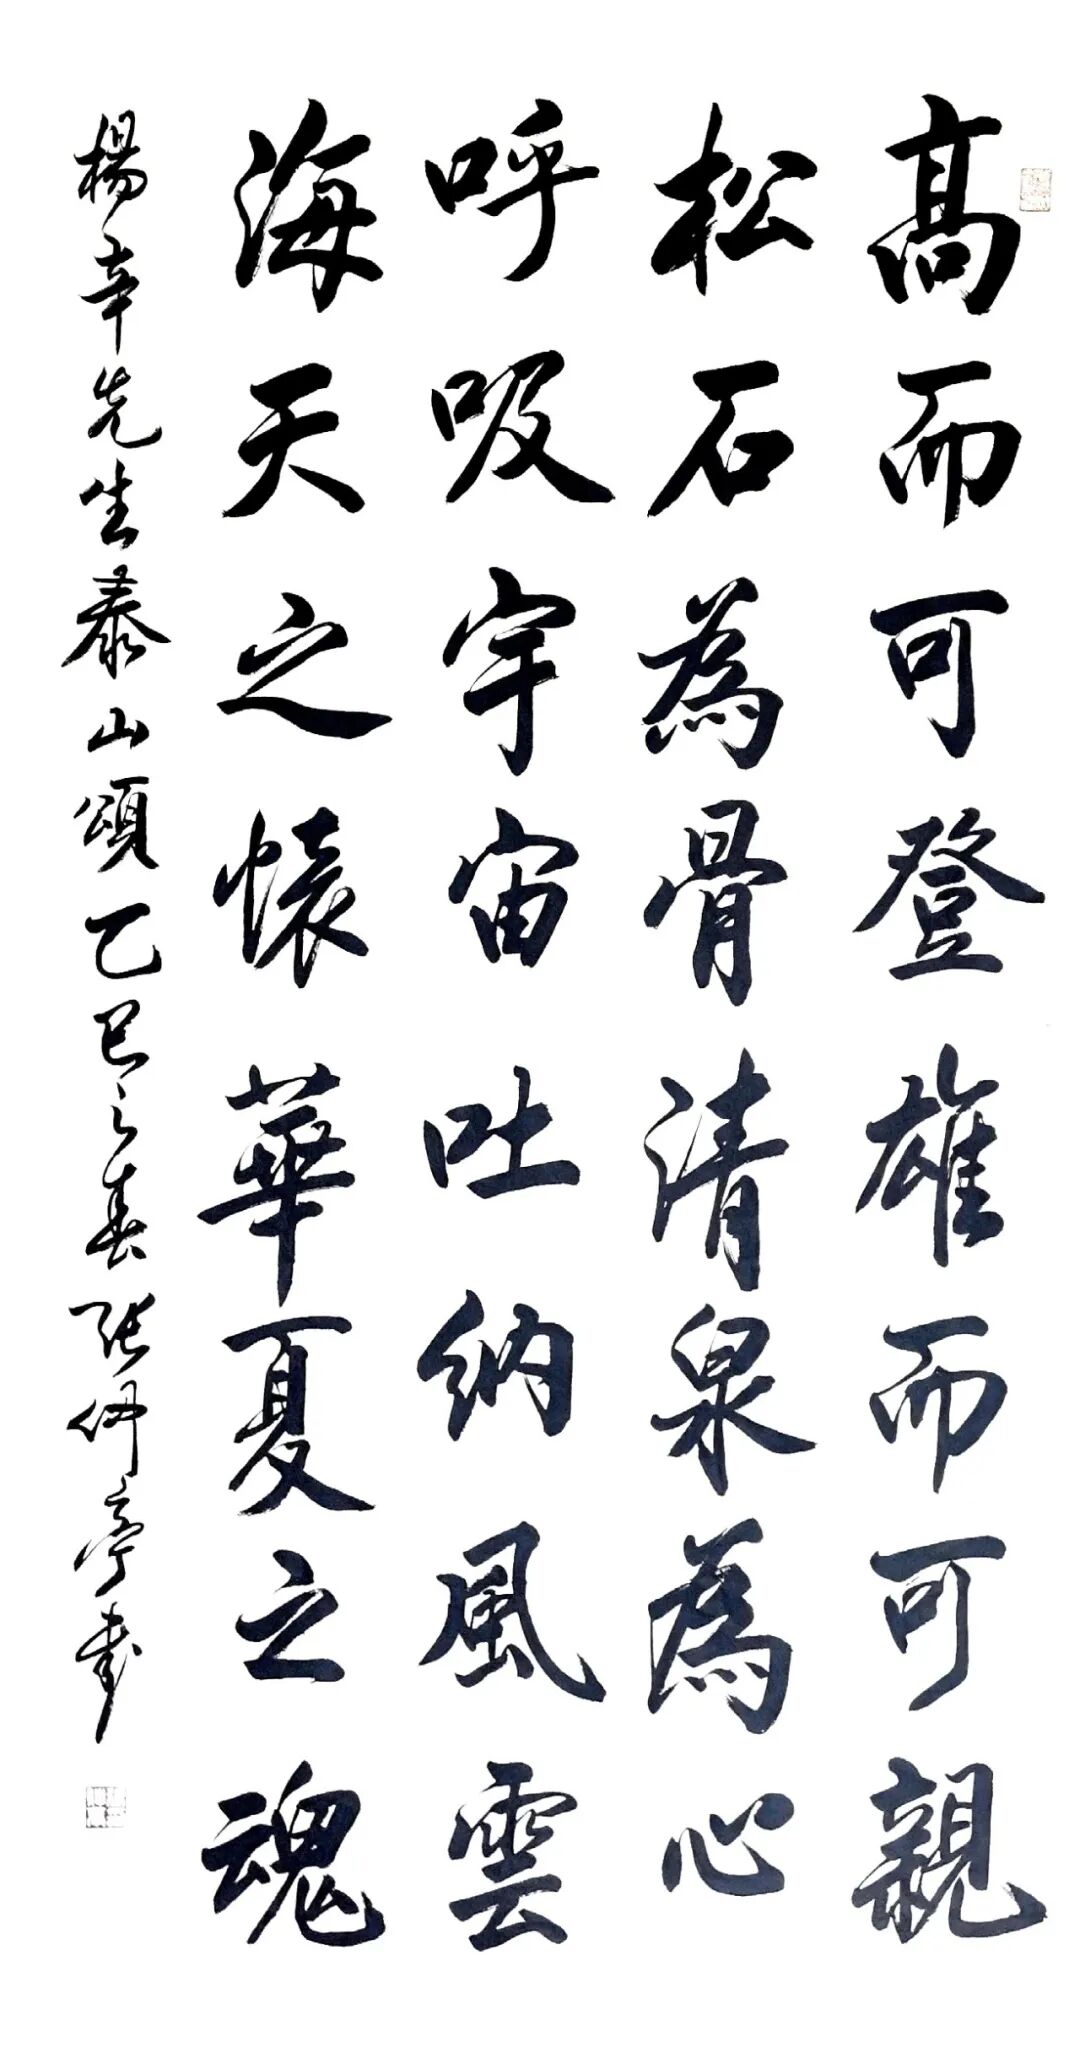 高而可登雄而可親
松石為骨清泉為心
呼吸宇宙吐納風雲
海天之懷華夏之魂
楊辛先生泰山頌乙巳之春張伊亭書